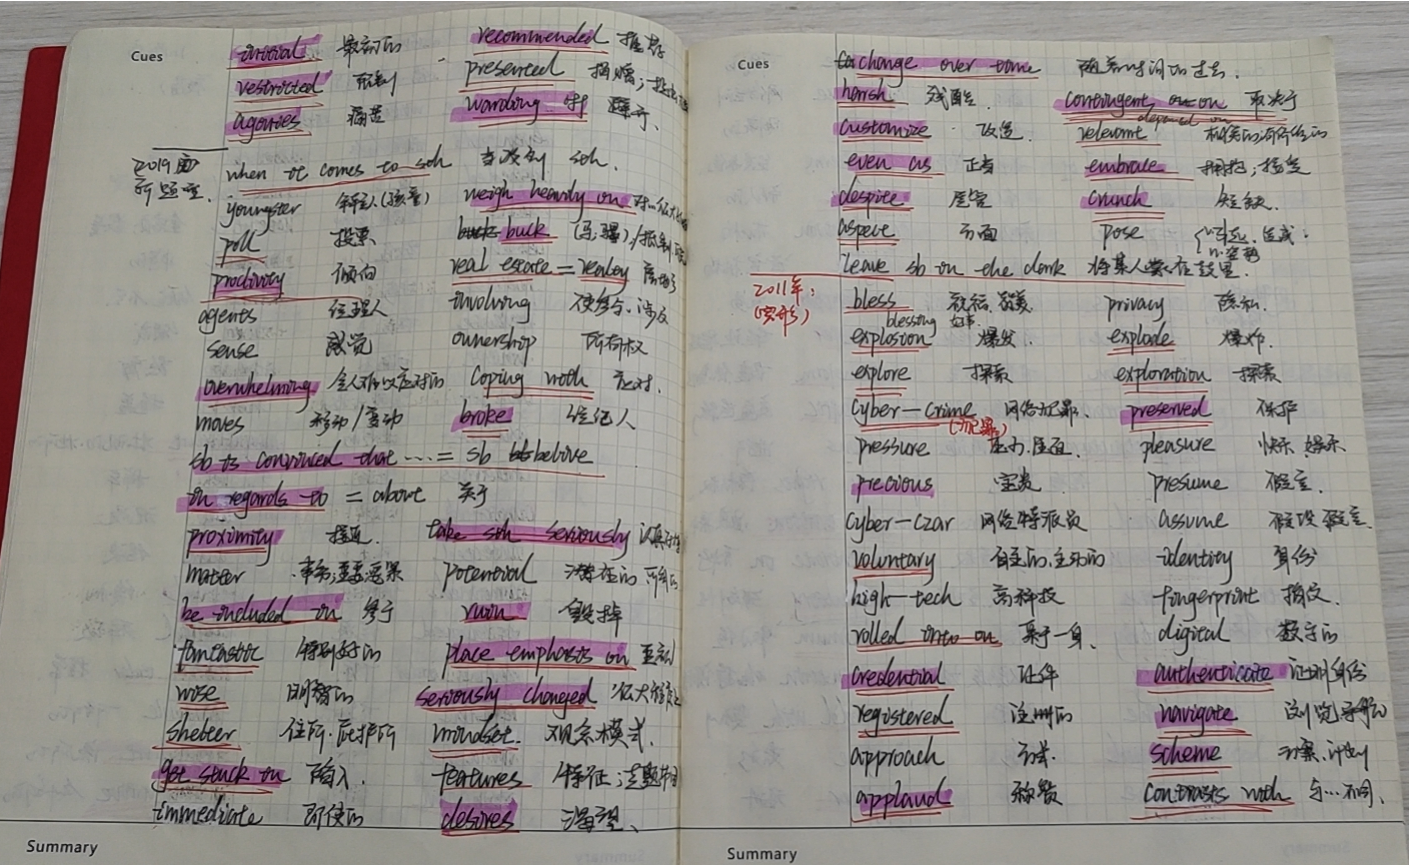 Cues
initial 最初的 recommended 推荐
restricted 限制 presented 捐赠;
agonies 痛苦 warding
2019
when it comes to sth 当谈到 sth.
youngster 年轻人(孩童) weigh heavily on
poll 投票 buck
proclivity 倾向 real estate = realty 房地产
agents 经理人 involving 使参与、涉及
sense 感觉 ownership 所有权
overwhelming 令人难以应对的 Coping with 应对.
moves 移动/变动 broke 经纪人
sb is convinced that ... = sb belive
in regards to = about 关于
proximity 接近. take sth seriously
matter potential 潜在的
be included in ruin 毁掉
fantastic 特别好的 place emphasis on
wise 明智的 seriously changed
shelter 住所·庇护所 mindset. 观念模式.
get stuck in 陷入. features 特征;
immediate 即使的 desires 渴望、
Summary
Cues
change over time 随着时间的过去.
harsh 残酷. contingent on 取决于
depend on
customize · 改造 relevant
even as 正当 embrace 拥抱;接受
despite 尽管 crunch 短缺
aspect 方面 pose
leave sb in the dark 将某人蒙在鼓里.
2011年:
(完形)
bless 祝福. privacy 隐私.
blessing
explosion 爆发. explode 爆炸.
explore 探索 exploration 探索
Cyber-Crime 网络犯罪. preserved 保护
pressure 压力. pleasure 快乐 娱乐
precious 宝贵 presume 假定.
Cyber-Czar 网络特派员 assume 假设 假定.
voluntary 自主的.主动的 identity 身份
high-tech 高科技 fingerprint 指纹.
rolled into on 集于一身. digital 数字的
Credential 证件 authenticate 证明身份
registered 注册的 navigate
approach 方式. scheme 方案.计划
applaud 称赞 Contrasts with 与…不同.
Summary